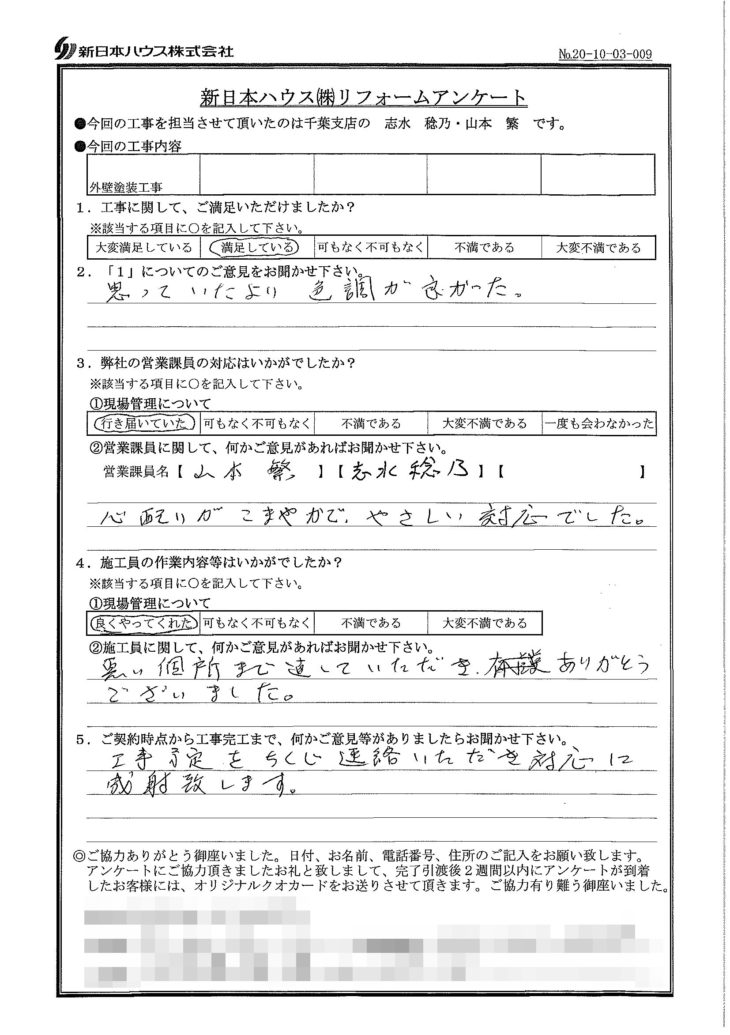 新日本ハウス株式会社
№20-10-03-009
新日本ハウス㈱リフォームアンケート
●今回の工事を担当させて頂いたのは千葉支店の 志水 稔乃・山本 繁 です。
●今回の工事内容
外壁塗装工事
1．工事に関して、ご満足いただけましたか？
※該当する項目に○を記入して下さい。
大変満足している 満足している 可もなく不可もなく 不満である 大変不満である
2．「1」についてのご意見をお聞かせ下さい。
思っていたより 色調が良かった。
3．弊社の営業課員の対応はいかがでしたか？
※該当する項目に○を記入して下さい。
①現場管理について
行き届いていた 可もなく不可もなく 不満である 大変不満である 一度も会わなかった
②営業課員に関して、何かご意見があればお聞かせ下さい。
営業課員名【 山本 繁 】【 志水 稔乃 】【 】
心配りがこまやかで、やさしい対応でした。
4．施工員の作業内容等はいかがでしたか？
※該当する項目に○を記入して下さい。
①現場管理について
良くやってくれた 可もなく不可もなく 不満である 大変不満である
②施工員に関して、何かご意見があればお聞かせ下さい。
悪い個所まで直していただき、ありがとう
ございました。
5．ご契約時点から工事完工まで、何かご意見等がありましたらお聞かせ下さい。
工事予定をちくじ連絡いただき対応に
感射致します。
◎ご協力ありがとう御座いました。日付、お名前、電話番号、住所のご記入をお願い致します。
アンケートにご協力頂きましたお礼と致しまして、完了引渡後２週間以内にアンケートが到着
したお客様には、オリジナルクオカードをお送りさせて頂きます。ご協力有り難う御座いました。